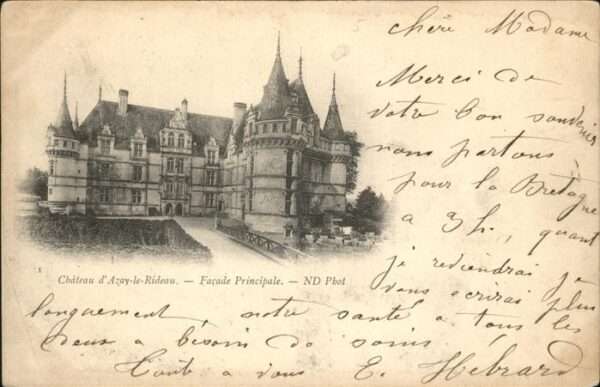 chère Madame
Merci de
votre bon souvenir
nous partons
pour la Bretagne
a 3h. quant
je reviendrai je
vous ecrirai plus
Château d'Azay-le-Rideau. — Façade Principale. — ND Phot
longuement, notre santé a tous les
deux a besoin de soins,
Toute a vous E. Hebrard